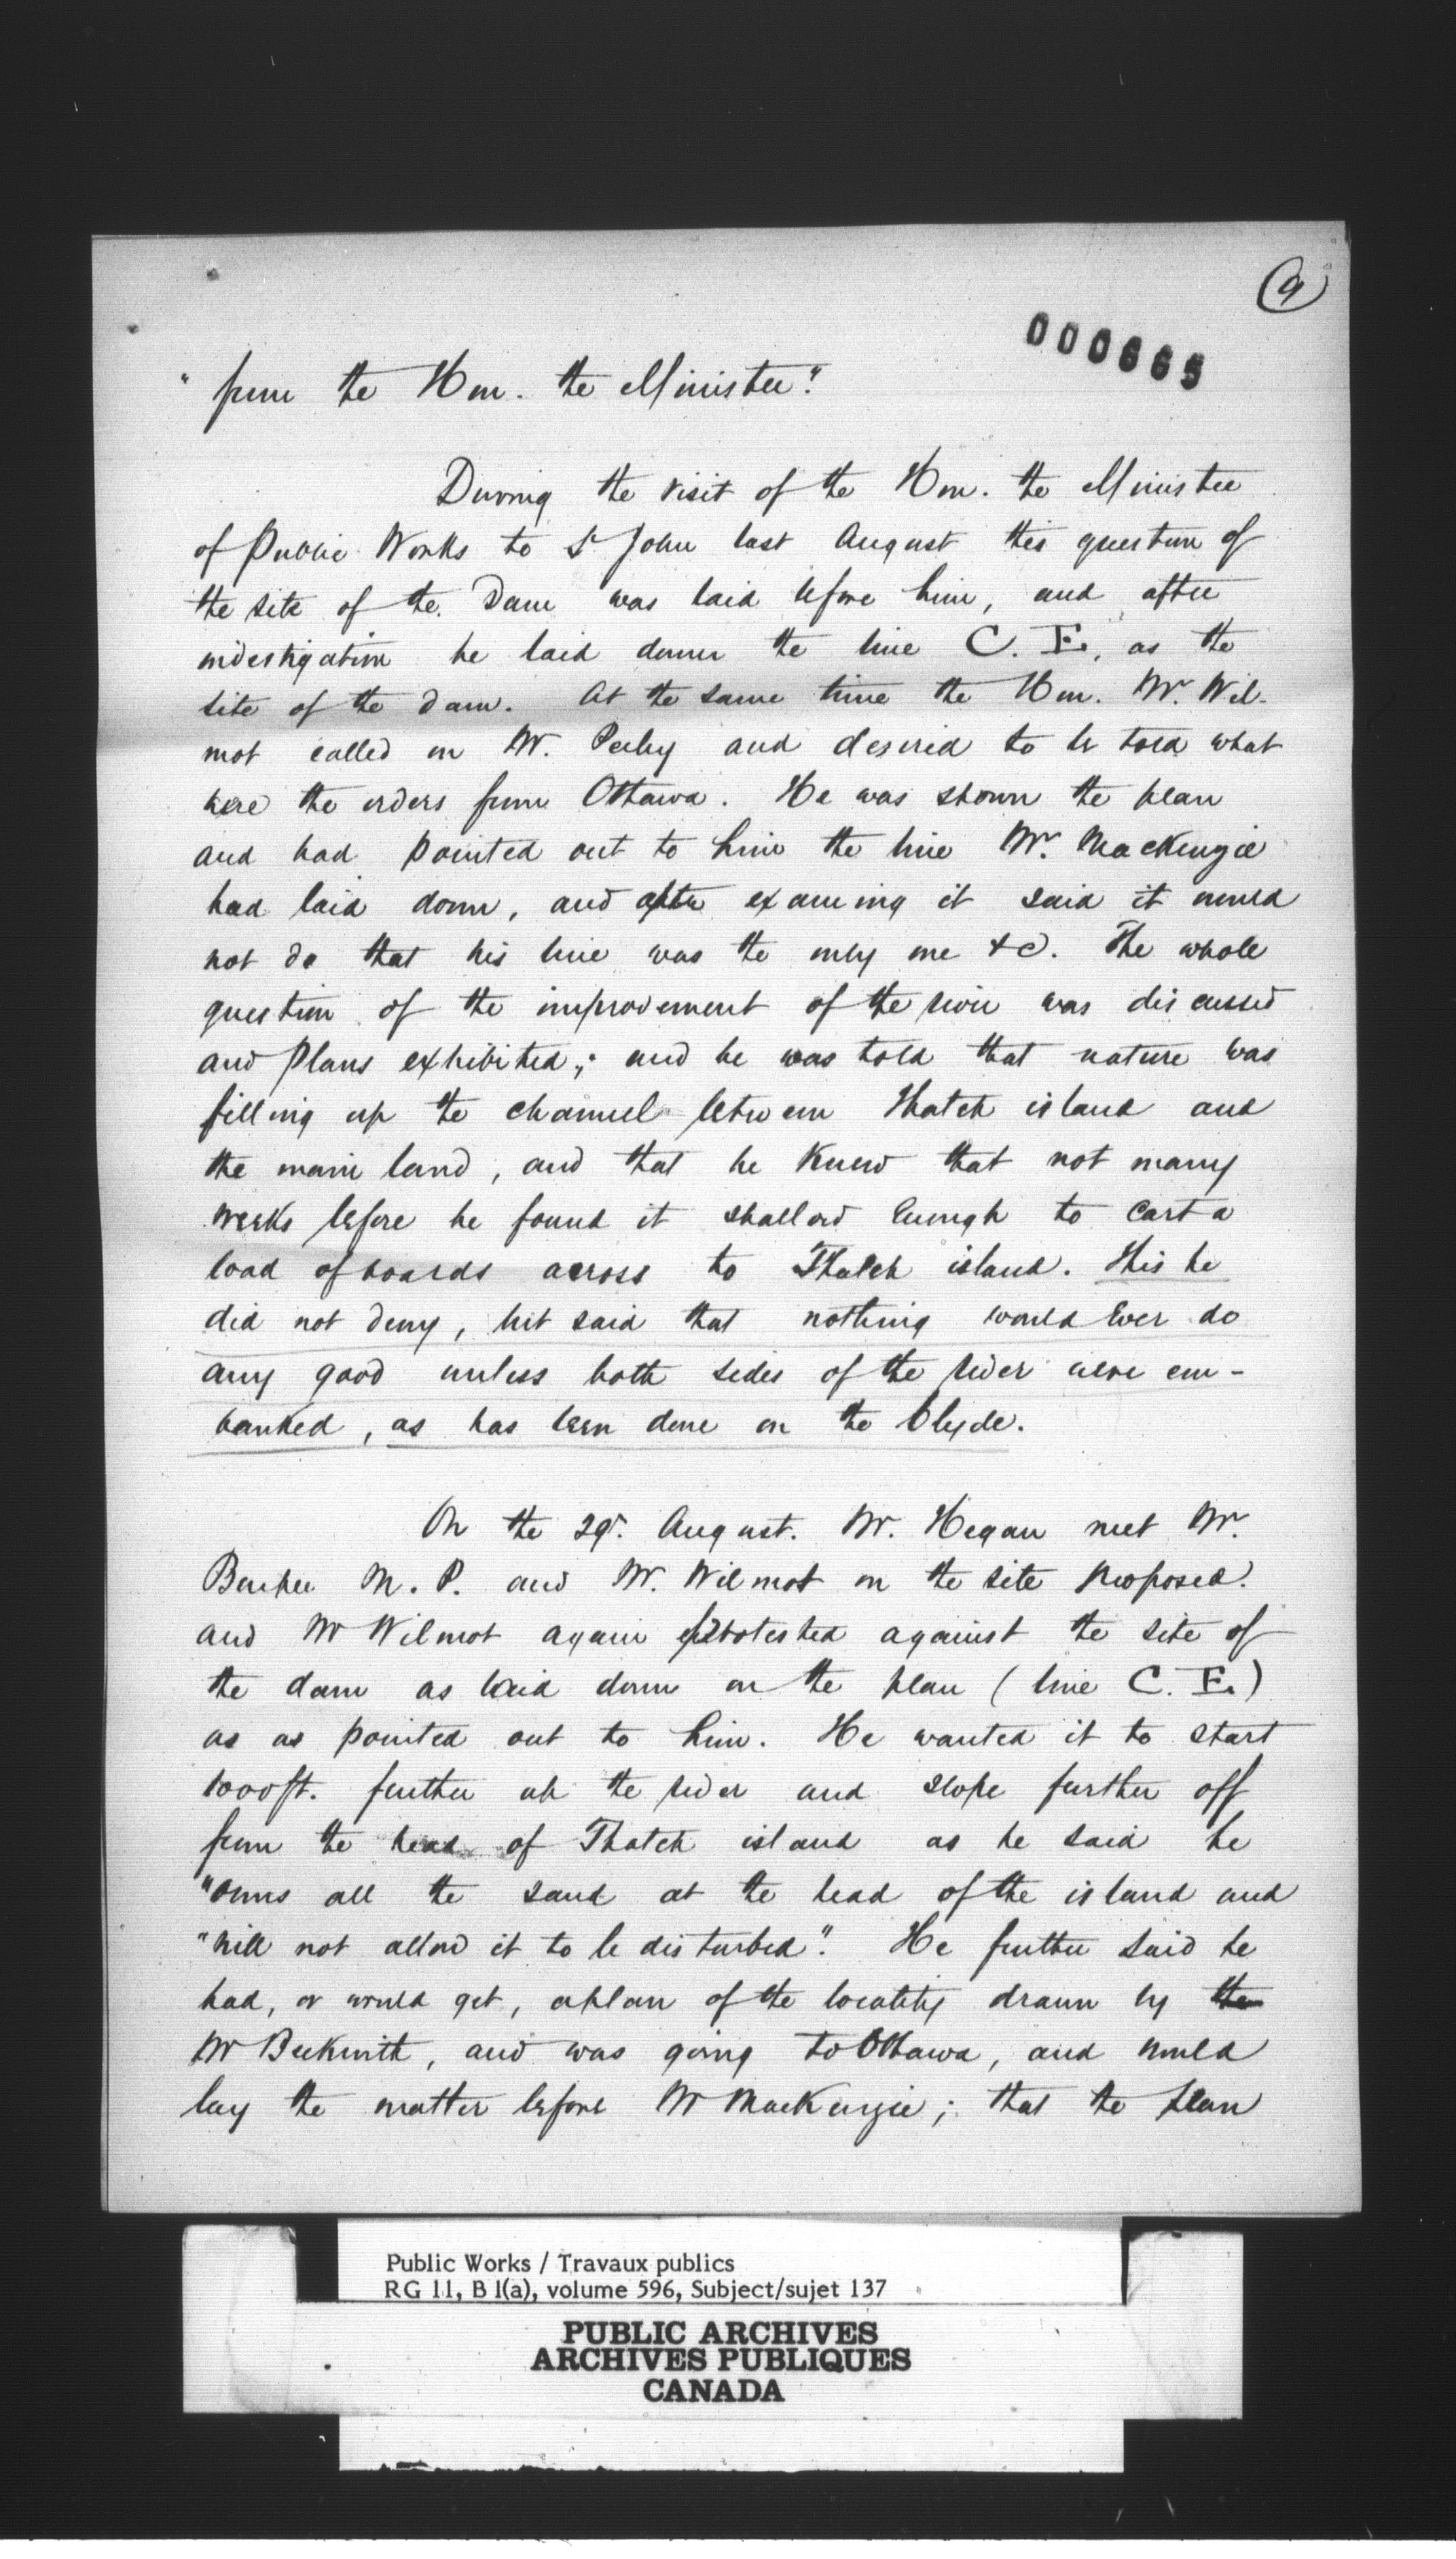 9
000665
"from the Hon. the Minister."
During the visit of the Hon. the Minister
of Public Works to St John last August this question of
the site of the Dam was laid before him, and after
investigation he laid down the line C. E. as the
site of the dam. At the same time the Hon. Mr. Wil-
mot called on Mr. Perley and desired to be told what
were the orders from Ottawa. He was shown the plan
and had pointed out to him the line Mr. MacKenzie
had laid down, and after examing it said it would
not do that his line was the only one &c. The whole
question of the improvement of the river was discussed
and Plans exhibited; and he was told that nature was
filling up the channel between Thatch island and
the main land, and that he knew that not many
weeks before he found it shallow enough to cart a
load of boards across to Thatch island. This he
did not deny, but said that nothing would ever do
any good unless both sides of the river were em-
banked, as has been done on the Clyde.
On the 29th. August. Mr. Hegan met Mr.
Burpee M. P. and Mr. Wilmot on the site proposed.
and Mr Wilmot again protested against the site of
the dam as laid down on the plan (line C. E.)
as as pointed out to him. He wanted it to start
1000ft. further up the river and slope further off
from the head of Thatch island as he said he
"owns all the sand at the head of the island and
"will not allow it to be disturbed". He further said he
had, or would get, a plan of the locality drawn by the
Mr Beckwith, and was going to Ottawa, and would
lay the matter before Mr MacKenzie; that the plan
Public Works / Travaux publics
RG 11, B 1(a), volume 596, Subject/sujet 137
PUBLIC ARCHIVES
ARCHIVES PUBLIQUES
CANADA